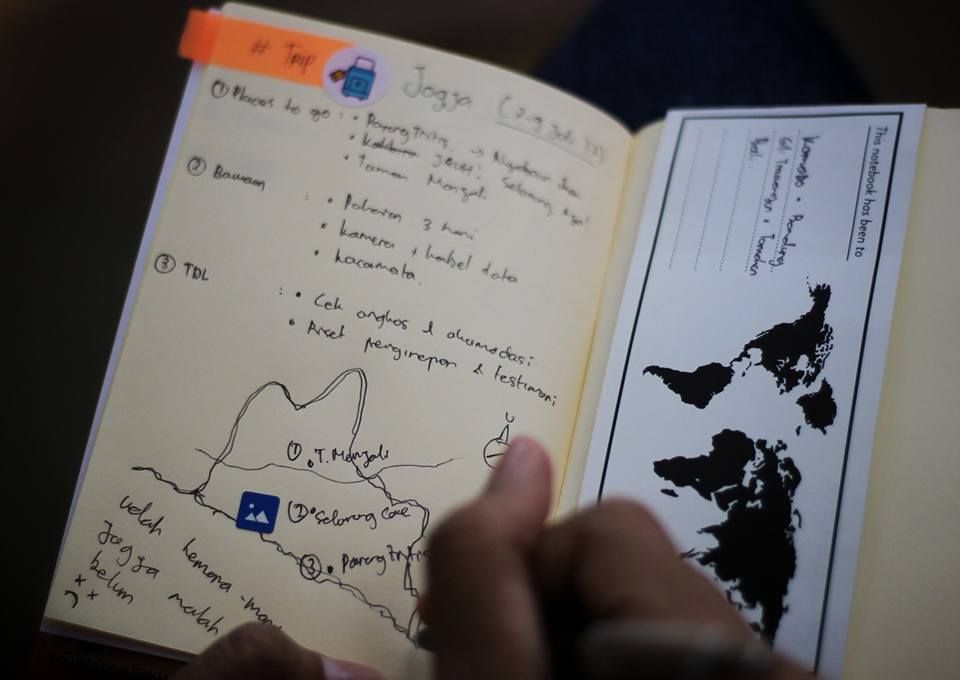 # Trip
Jogja (7-9 Juli
① Places to go : • Parang Tritis →
• Goa Selarong
• Taman Mengali
② Bawaan : • Pakaian 3 hari
• kamera + kabel data
• kacamata.
③ TDL : • Cek ongkos & akomodasi
• Riset penginepan & testimoni
U
① • T. Mengali
② • Selarong Cave
③ • Parang Tritis
udah kemana-mana
Jogja
belum malah
This notebook has been to
Komodo • Bandung
Gili Trawangan •
Bali.